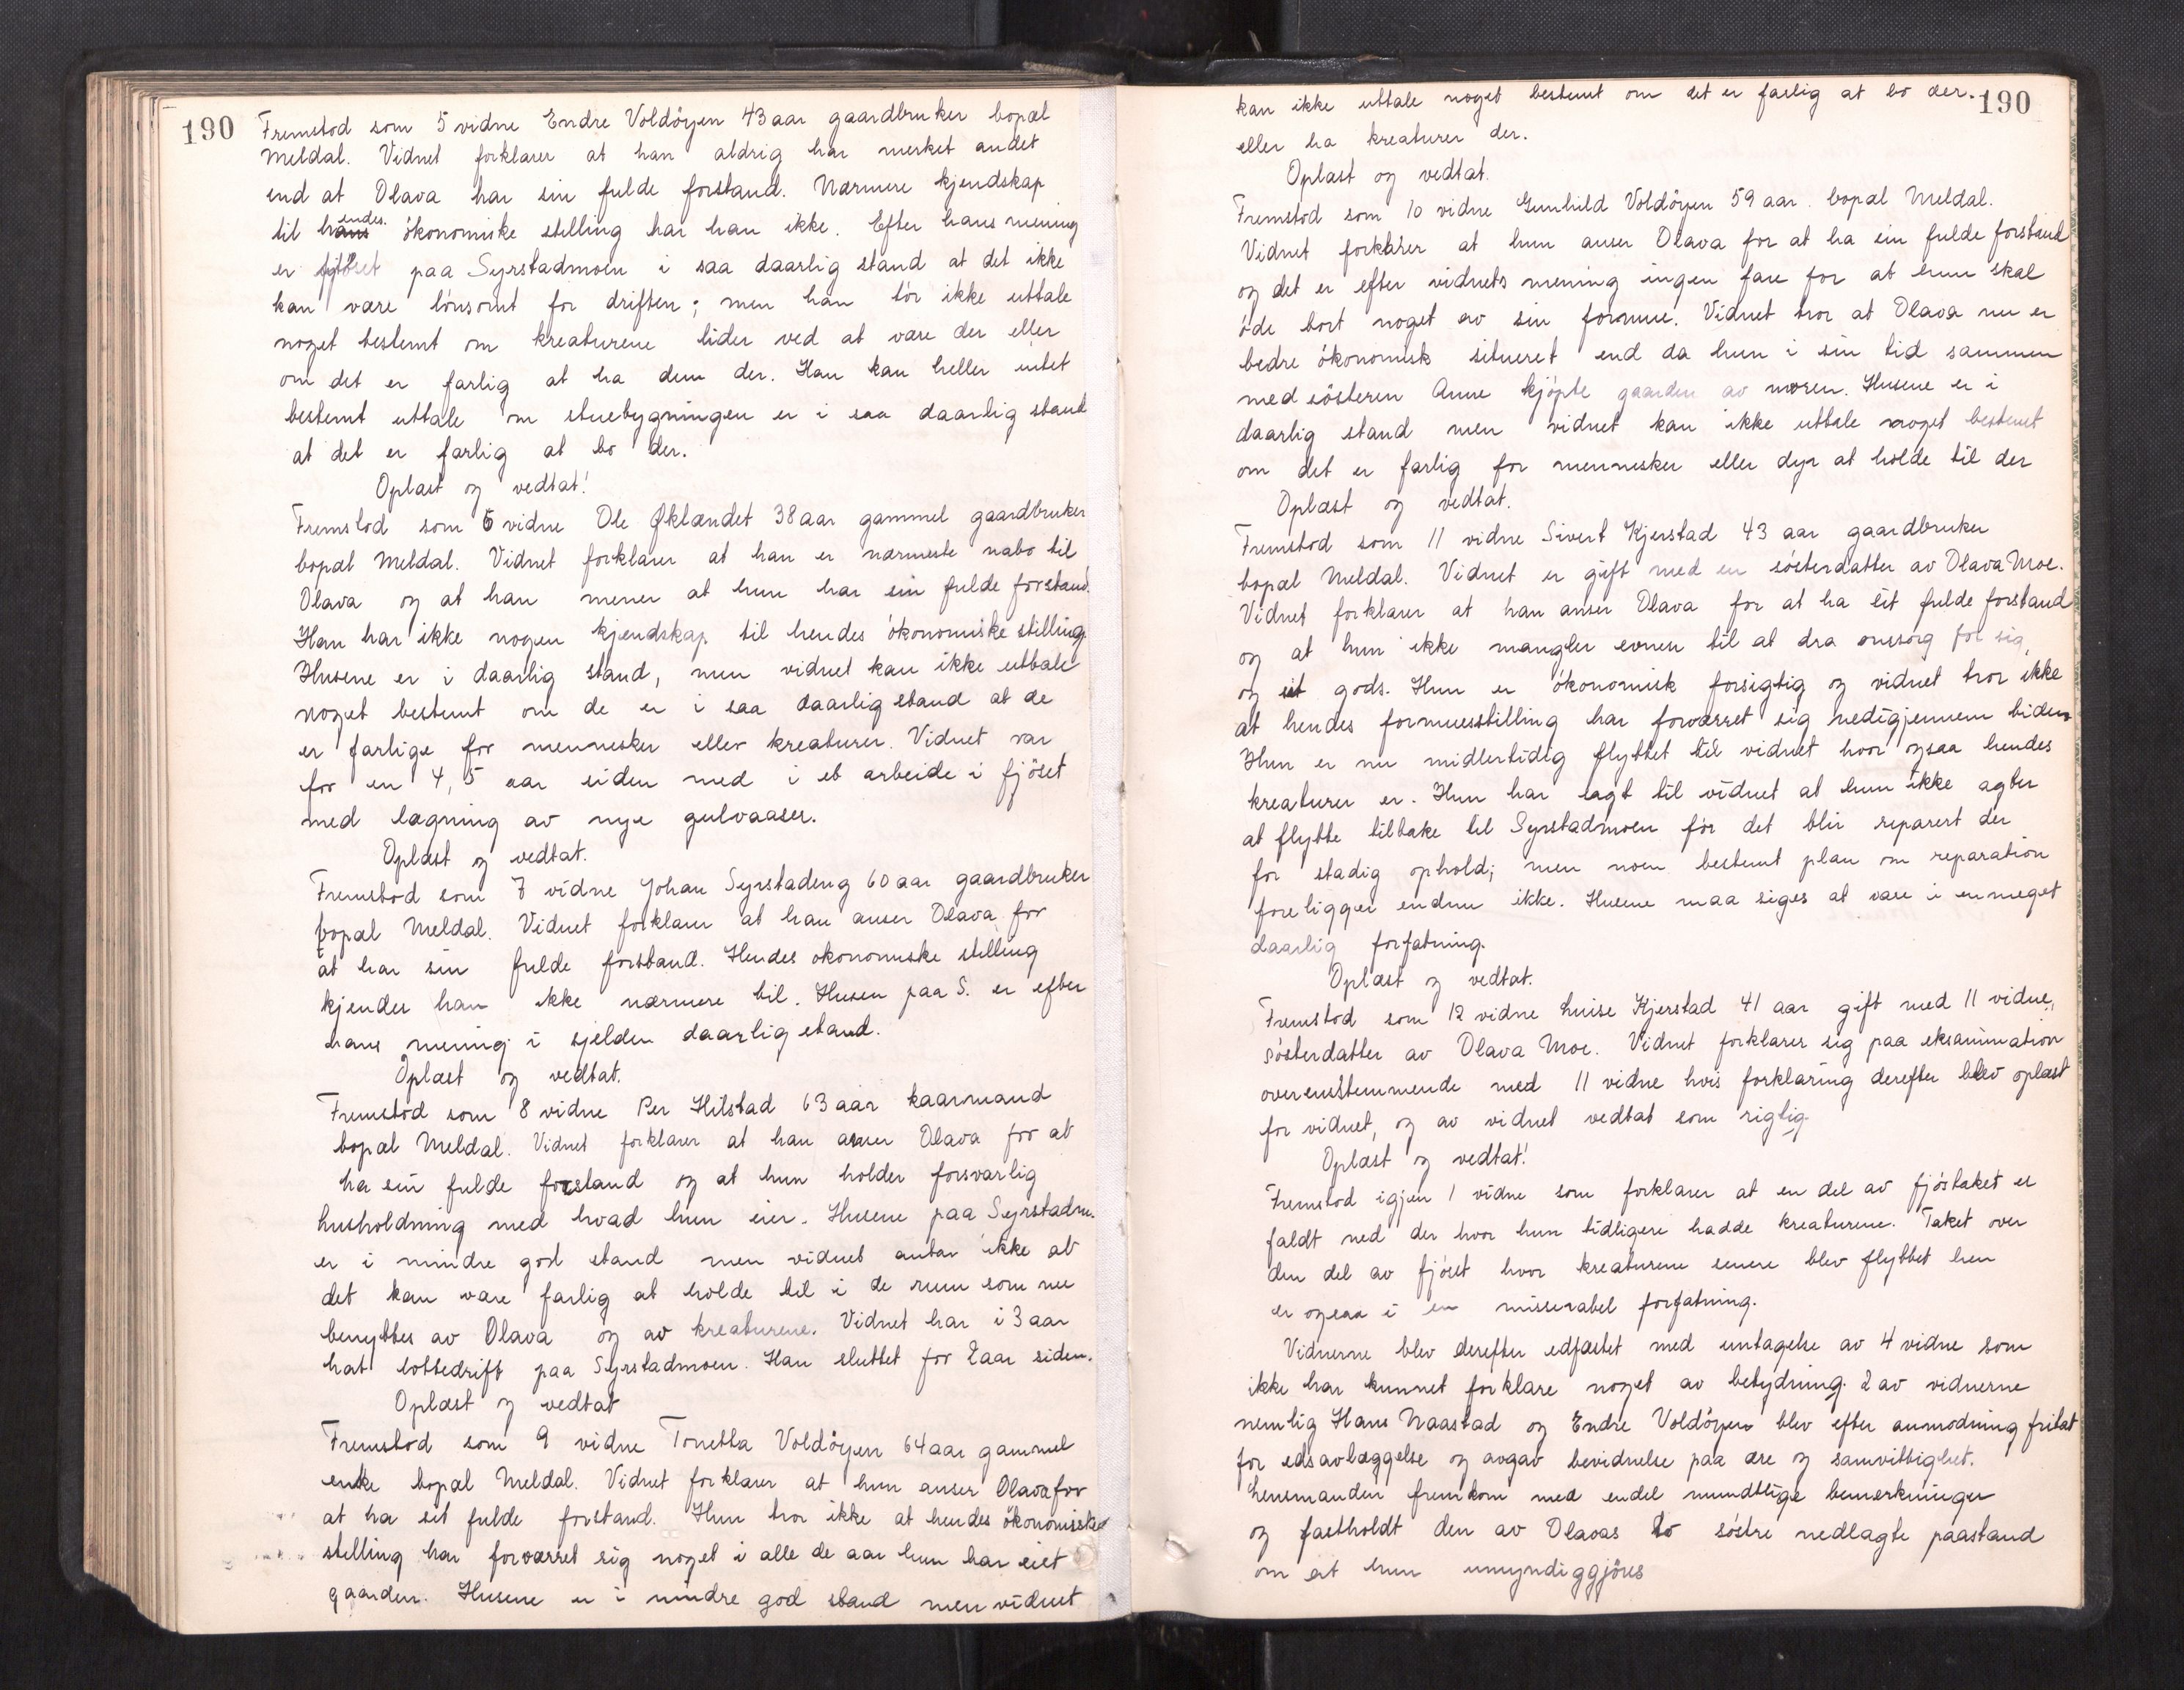 190
Fremstod som 5 vidne Endre Voldöyen 43 aar gaardbruker bopæl
Meldal. Vidnet forklarer at han aldrig har merket andet
end at Olava har sin fulde forstand. Nærmere kjendskap
til hendes ökonomiske stilling har han ikke. Efter hans mening
er fjöset paa Syrstadmoen i saa daarlig stand at det ikke
kan være lönsomt for driften; men han tör ikke uttale
noget bestemt om kreaturene lider ved at være der eller
om det er farlig at ha dem der. Han kan heller intet
bestemt uttale om stuebygningen er i saa daarlig stand
at det er farlig at bo der.
Oplæst og vedtat!
Fremstod som 6 vidne Ole Øklændet 38 aar gammel gaardbruker
bopæl Meldal. Vidnet forklarer at han er nærmeste nabo til
Olava og at han mener at hun har sin fulde forstand.
Han har ikke nogen kjendskap til hendes ökonomiske stilling.
Husene er i daarlig stand, men vidnet kan ikke uttale
noget bestemt om de er i saa daarlig stand at de
er farlige for mennesker eller kreaturer. Vidnet var
for en 4, 5 aar siden med i et arbeide i fjöset
med lægning av nye gulvaaser.
Oplæst og vedtat.
Fremstod som 7 vidne Johan Syrstadeng 60 aar gaardbruker
bopæl Meldal. Vidnet forklarer at han anser Olava for
at har sin fulde forstand. Hendes okonomiske stilling
kjender han ikke nærmere til. Husen paa S. er efter
hans mening i sjelden daarlig stand.
Oplæst og vedtat.
Fremstod som 8 vidne Per Hilstad 63 aar kaarmand
bopæl Meldal. Vidnet forklarer at han anser Olava for at
ha sin fulde forstand og at hun holder forsvarlig
husholdning med hvad hun eier. Husene paa Syrstadm.
er i mindre god stand men vidnet antar ikke at
det kan være farlig at holde til i de rum som nu
benyttes av Olava og av kreaturene. Vidnet har i 3 aar
hat lottedrift paa Syrstadmoen. Han sluttet for 2 aar siden.
Oplæst og vedtat
Fremstod som 9 vidne Tonetta Voldöyen 64 aar gammel
enke bopæl Meldal. Vidnet forklarer at hun anser Olava for
at ha sit fulde forstand. Hun tror ikke at hendes ökonomiske
stilling har forværret sig noget i alle de aar hun har eiet
gaarden. Husene er i mindre god stand men vidnet
190
kan ikke uttale noget bestemt om det er farlig at bo der.
eller ha kreaturer der.
Oplæst og vedtat.
Fremstod som 10 vidne Gunhild Voldöyen 59 aar. bopæl Meldal.
Vidnet forklarer at hun anser Olava for at ha sin fulde forstand
og det er efter vidnets mening ingen fare for at hun skal
öde bort noget av sin formue. Vidnet tror at Olava nu er
bedre ökonomisk situeret end da hun i sin tid sammen
med sösteren Anne kjöpte gaarden av moren. Husene er i
daarlig stand men vidnet kan ikke uttale noget bestemt
om det er farlig for mennesker eller dyr at holde til der
Oplæst og vedtat.
Fremstod som 11 vidne Sivert Kjerstad 43 aar gaardbruker
bopæl Meldal. Vidnet er gift med en sösterdatter av Olava Moe.
Vidnet forklarer at han anser Olava for at ha sit fulde forstand
og at hun ikke mangler evnen til at dra omsorg for sig
og sit gods. Hun er ökonomisk forsigtig og vidnet tror ikke
at hendes formuesstilling har forværret sig nedigjennem tiden.
Hun er nu midlertidig flyttet til vidnet hvor ogsaa hendes
kreaturer er. Hun har sagt til vidnet at hun ikke agter
at flytte tilbake til Syrstadmoen för det blir reparert der
for stadig ophold; men noen bestemt plan om reparation
foreligger endnu ikke. Husene maa siges at være i en meget
daarlig forfatning.
Oplæst og vedtat.
Fremstod som 12 vidne Luise Kjerstad 41 aar gift med 11 vidne,
sösterdatter av Olava Moe. Vidnet forklarer sig paa eksamination
overenstemmende med 11 vidne hvis forklaring derefter blev oplæst
for vidnet, og av vidnet vedtat som rigtig.
Oplæst og vedtat!
Fremstod igjen 1 vidne som forklarer at en del av fjöstaket er
faldt ned der hvor hun tidligere hadde kreaturene. Taket over
den del av fjöset hvor kreaturene senere blev flyttet hen
er ogsaa i en misserabel forfatning.
Vidnerne blev derefter edfæstet med untagelse av 4 vidne som
ikke har kunnet forklare noget av betydning. 2 av vidnerne
nemlig Hans Naastad og Endre Voldöyen blev efter anmodning fritat
for edsavlæggelse og avgav bevidnelse paa ære og samvittighet.
Lensmanden fremkom med endel mundtlige bemerkninger
og fastholdt den av Olavas to söstre nedlagte paastand
om at hun umyndiggjöres